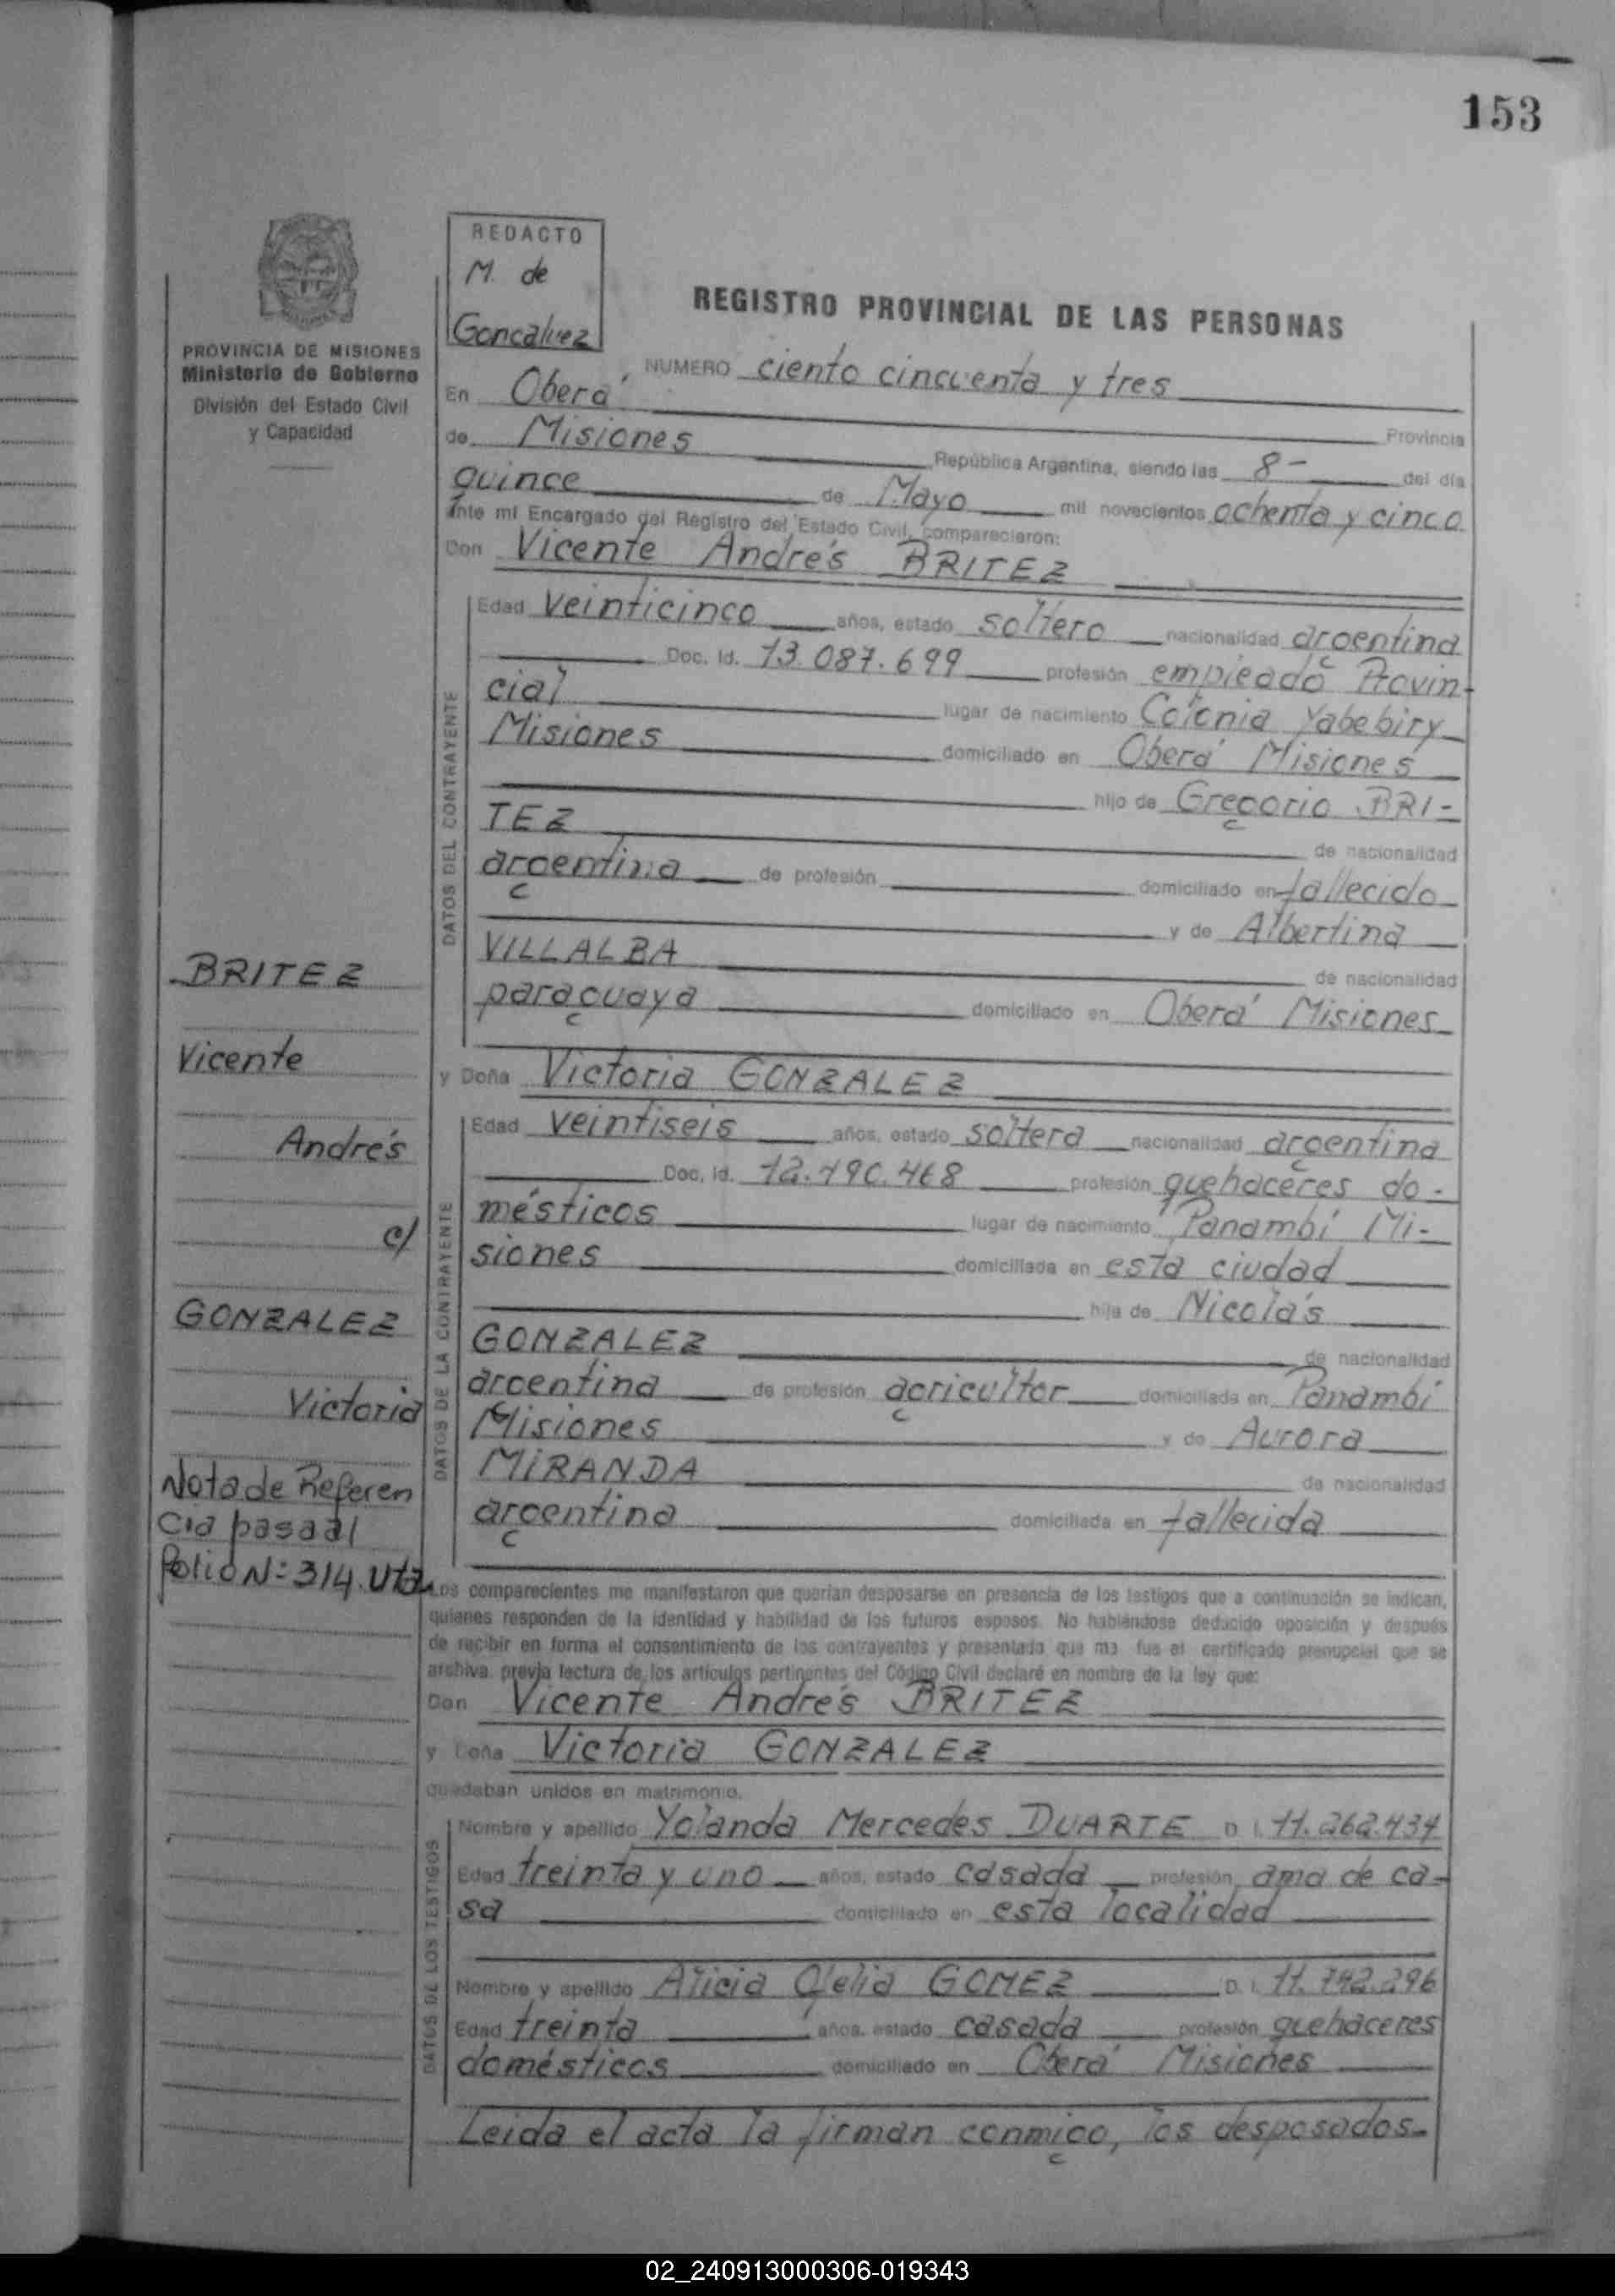 153
REDACTO
M. de
Goncalvez
REGISTRO PROVINCIAL DE LAS PERSONAS
PROVINCIA DE MISIONES
Ministerio de Gobierno
División del Estado Civil
y Capacidad
NUMERO ciento cincuenta y tres
En Oberá Provincia
de Misiones República Argentina, siendo las 8- del día
quince de Mayo mil novecientos ochenta y cinco
Ante mi Encargado del Registro del Estado Civil, comparecieron:
Don Vicente Andrés BRITEZ
DATOS DEL CONTRAYENTE
Edad veinticinco años, estado soltero nacionalidad argentina
Doc. Id. 13.087.699 profesión empleado Provin-
cial lugar de nacimiento Colonia Yabebiry
Misiones domiciliado en Oberá Misiones
hijo de Gregorio BRI-
TEZ de nacionalidad
argentina de profesión domiciliado en fallecido
y de Albertina
VILLALBA de nacionalidad
paraguaya domiciliado en Oberá Misiones
y Doña Victoria GONZALEZ
DATOS DE LA CONTRAYENTE
Edad veintiseis años, estado soltera nacionalidad argentina
Doc. Id. 12.190.468 profesión quehaceres do-
mésticos lugar de nacimiento Panambí Mi-
siones domiciliada en esta ciudad
hija de Nicolás
GONZALEZ de nacionalidad
argentina de profesión agricultor domiciliada en Panambí
Misiones y de Aurora
MIRANDA de nacionalidad
argentina domiciliada en fallecida
BRITEZ
Vicente
Andrés
c/
GONZALEZ
Victoria
Nota de Referen
cia pasa al
Folio N= 314. Vta
Los comparecientes me manifestaron que querían desposarse en presencia de los testigos que a continuación se indican,
quienes responden de la identidad y habilidad de los futuros esposos. No habiéndose deducido oposición y después
de recibir en forma el consentimiento de los contrayentes y presentado que me fue el certificado prenupcial que se
archiva, previa lectura de los artículos pertinentes del Código Civil declaré en nombre de la ley que:
Don Vicente Andrés BRITEZ
y Doña Victoria GONZALEZ
quedaban unidos en matrimonio.
DATOS DE LOS TESTIGOS
Nombre y apellido Yolanda Mercedes DUARTE D. I. 11.262.434
Edad treinta y uno años, estado casada profesión ama de ca-
sa domiciliado en esta localidad
Nombre y apellido Alicia Ofelia GOMEZ D. I. 11.742.296
Edad treinta años, estado casada profesión quehaceres
domésticos domiciliado en Oberá Misiones
Leida el acta la firman conmigo, los desposados-
02_240913000306-019343